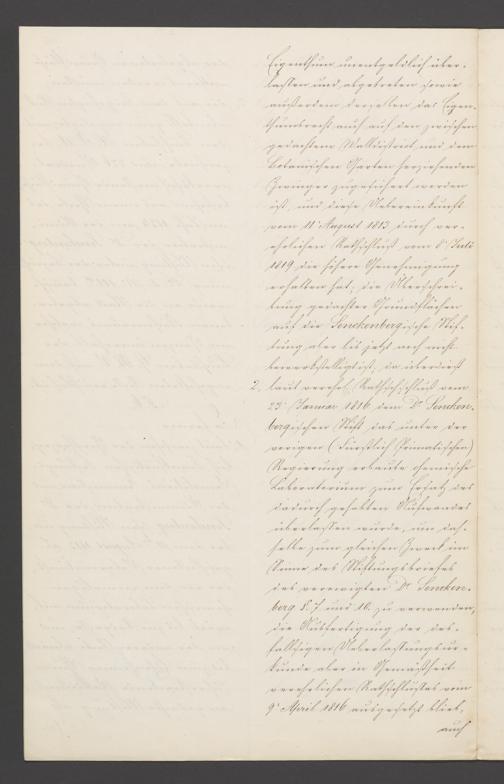 Eigenthum unentgeldlich über-
lassen und abgetreten, sowie
außerdem derselben das Eigen-
thumsrecht auch auf den zwischen
gedachtem Walldistrict und dem
Botanischen Garten herziehenden
Zwinger zugesichert worden
ist, und diese Uebereinkunft
vom 11t August 1813 durch ver-
ehrlichen Rathschluß vom 8t Juli
1819 die höhere Genehmigung
erhalten hat; die Überschrei-
bung gedachter Grundflächen
auf die Senckenbergische Stif-
tung aber bis jetzt noch nicht
bewerkstelligt ist, da überdieß
2. laut verehrl. Rathschlusses vom
23t Januar 1816 dem Dr Sencken-
bergischen Stift das unter der
vorigen (Fürstlich Primatischen)
Regierung erbaute chemische
Laboratorium zum Ersatz des
dadurch gehabten Aufwandes
überlassen wurde, um das-
selbe zum gleichen Zweck im
Sinne des Stiftungsbriefes
des verewigten Dr Sencken-
berg §. 7 und 16. zu verwenden,
die Ausfertigung der des-
fallsigen Ueberlassungsur-
kunde aber in Gemäßheit
verehrlichen Rathschlusses vom
9t April 1816 ausgesetzt blieb,
auch